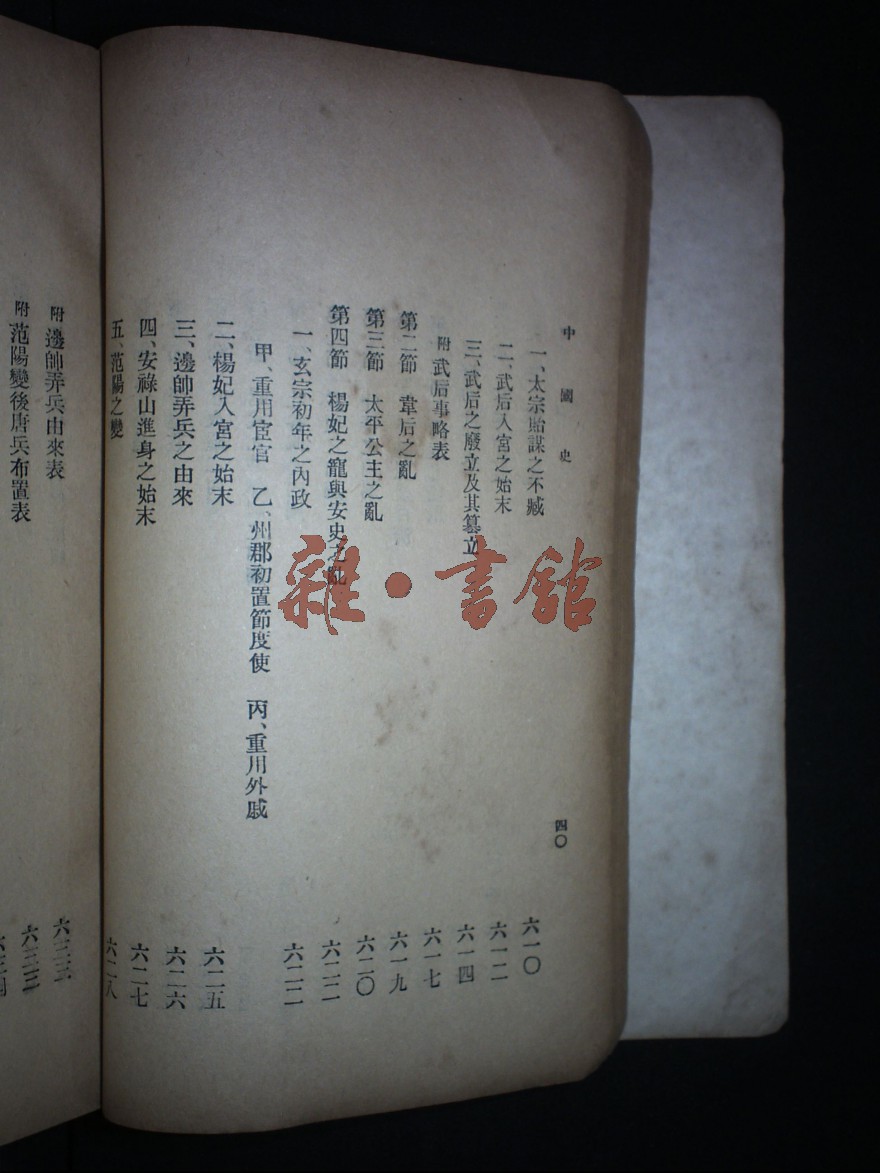 中國史
四〇
一、太宗貽謀之不臧 六一〇
二、武后入宮之始末 六一二
三、武后之廢立及其篡立 六一四
附 武后事略表 六一七
第二節 韋后之亂 六一九
第三節 太平公主之亂 六二〇
第四節 楊妃之寵與安史之亂 六二二
一、玄宗初年之內政 六二二
甲、重用宦官 乙、州郡初置節度使 丙、重用外戚
二、楊妃入宮之始末 六二五
三、邊帥弄兵之由來 六二六
四、安祿山進身之始末 六二七
五、范陽之變 六二八
附 邊帥弄兵由來表 六三三
附 范陽變後唐兵布置表 六三三
雜·書館